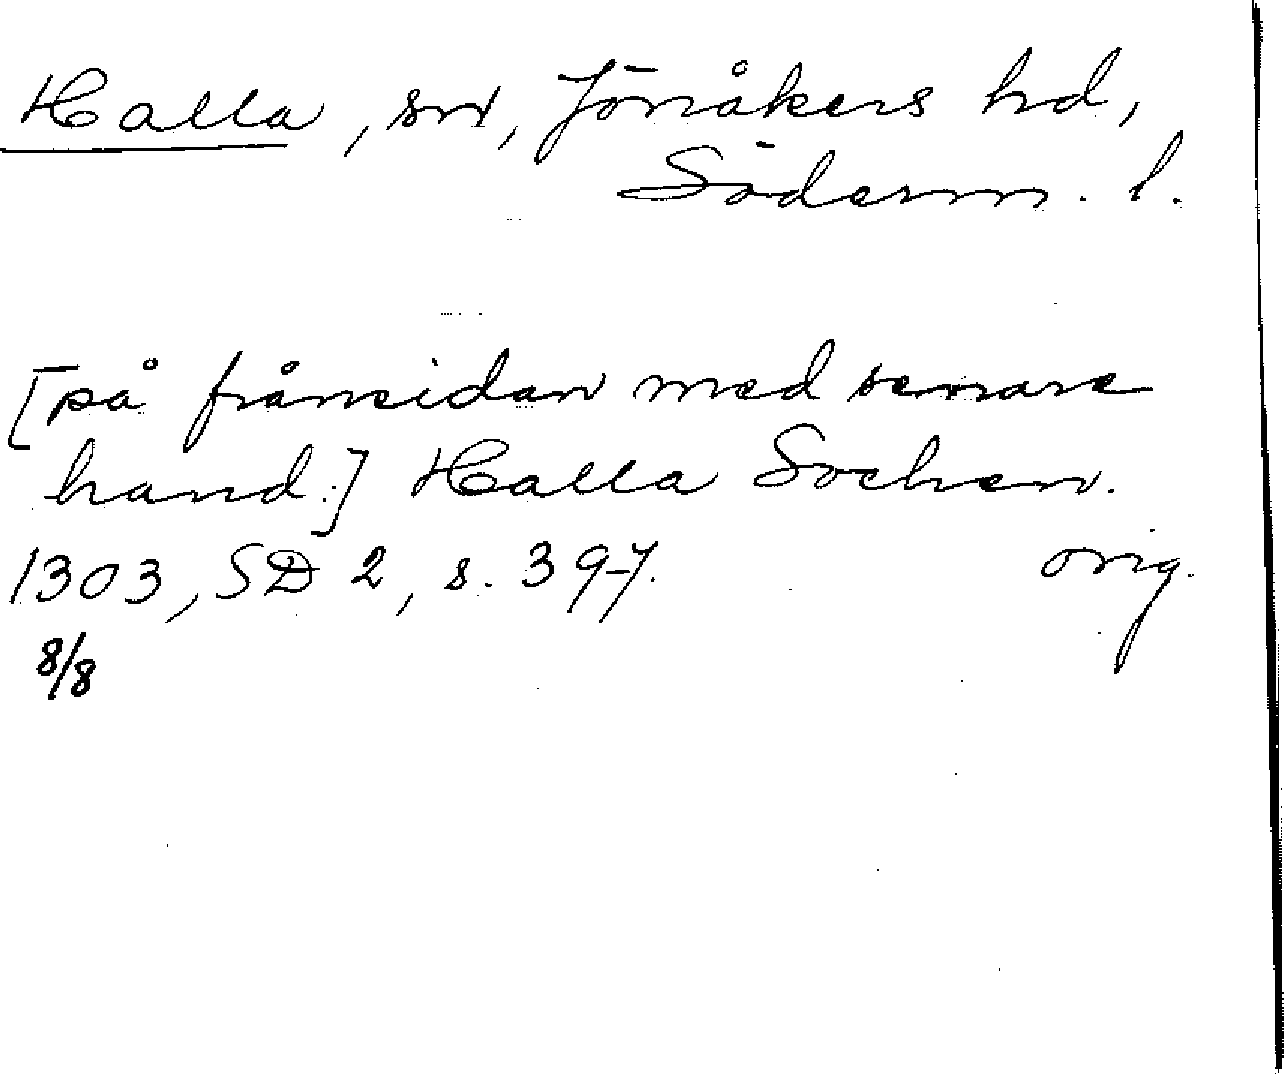 Halla, sn, Jönåkers hd,
Söderm. l.
[på frånsidan med senare
hand:] Halla Sochen.
1303, SD 2, s. 397. orig.
8/8